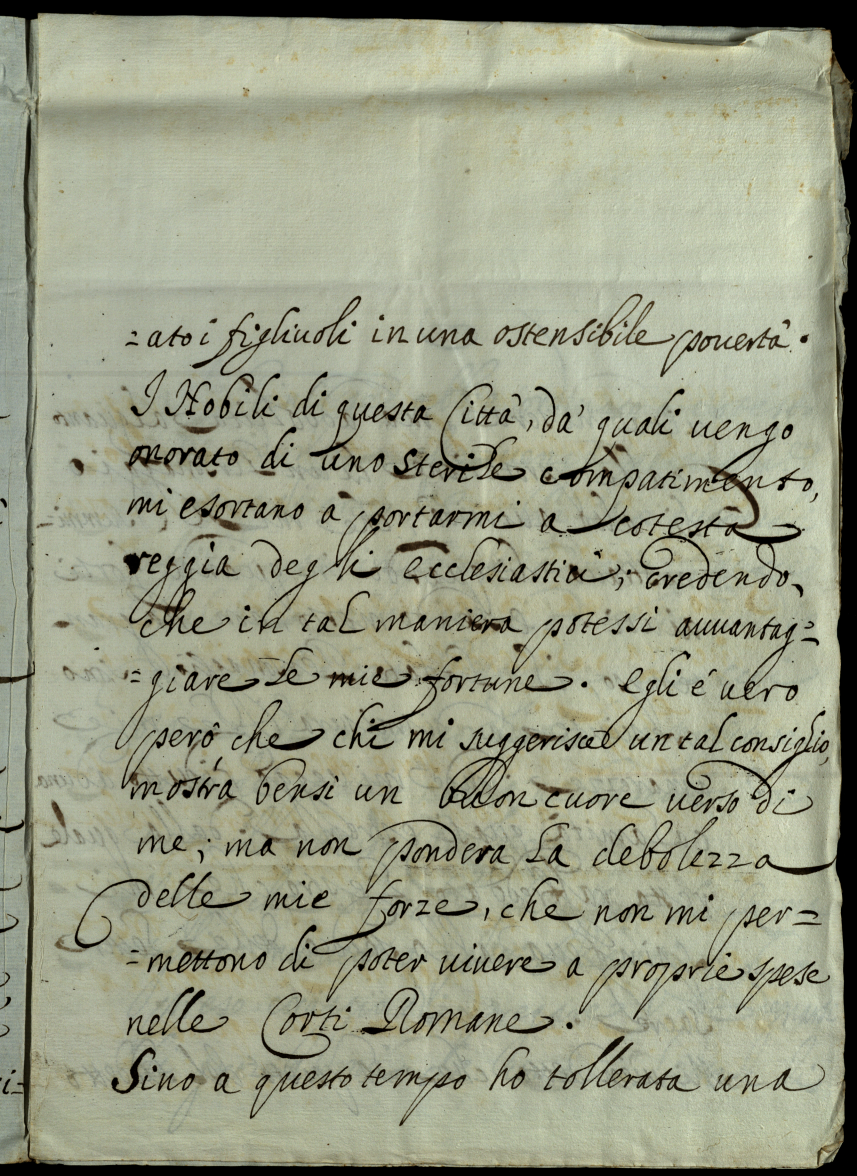 =ato i figliuoli in una ostensibile pouertà.
I Nobili di questa Città, da' quali uengo
onorato di uno sterile compatimento,
mi esortano à portarmi a cotesta
reggia degli ecclesiastici; credendo,
che in tal maniera potessi auuantag=
=giare le mie fortune. Egli è uero
però, che chi mi suggerisce un tal consiglio,
mostra bensi un buon cuore uerso di
me; ma non pondera la debolezza
delle mie forze, che non mi per=
=mettono di poter uiuere a proprie spese
nelle Corti Romane.
Sino a questo tempo ho tollerata una